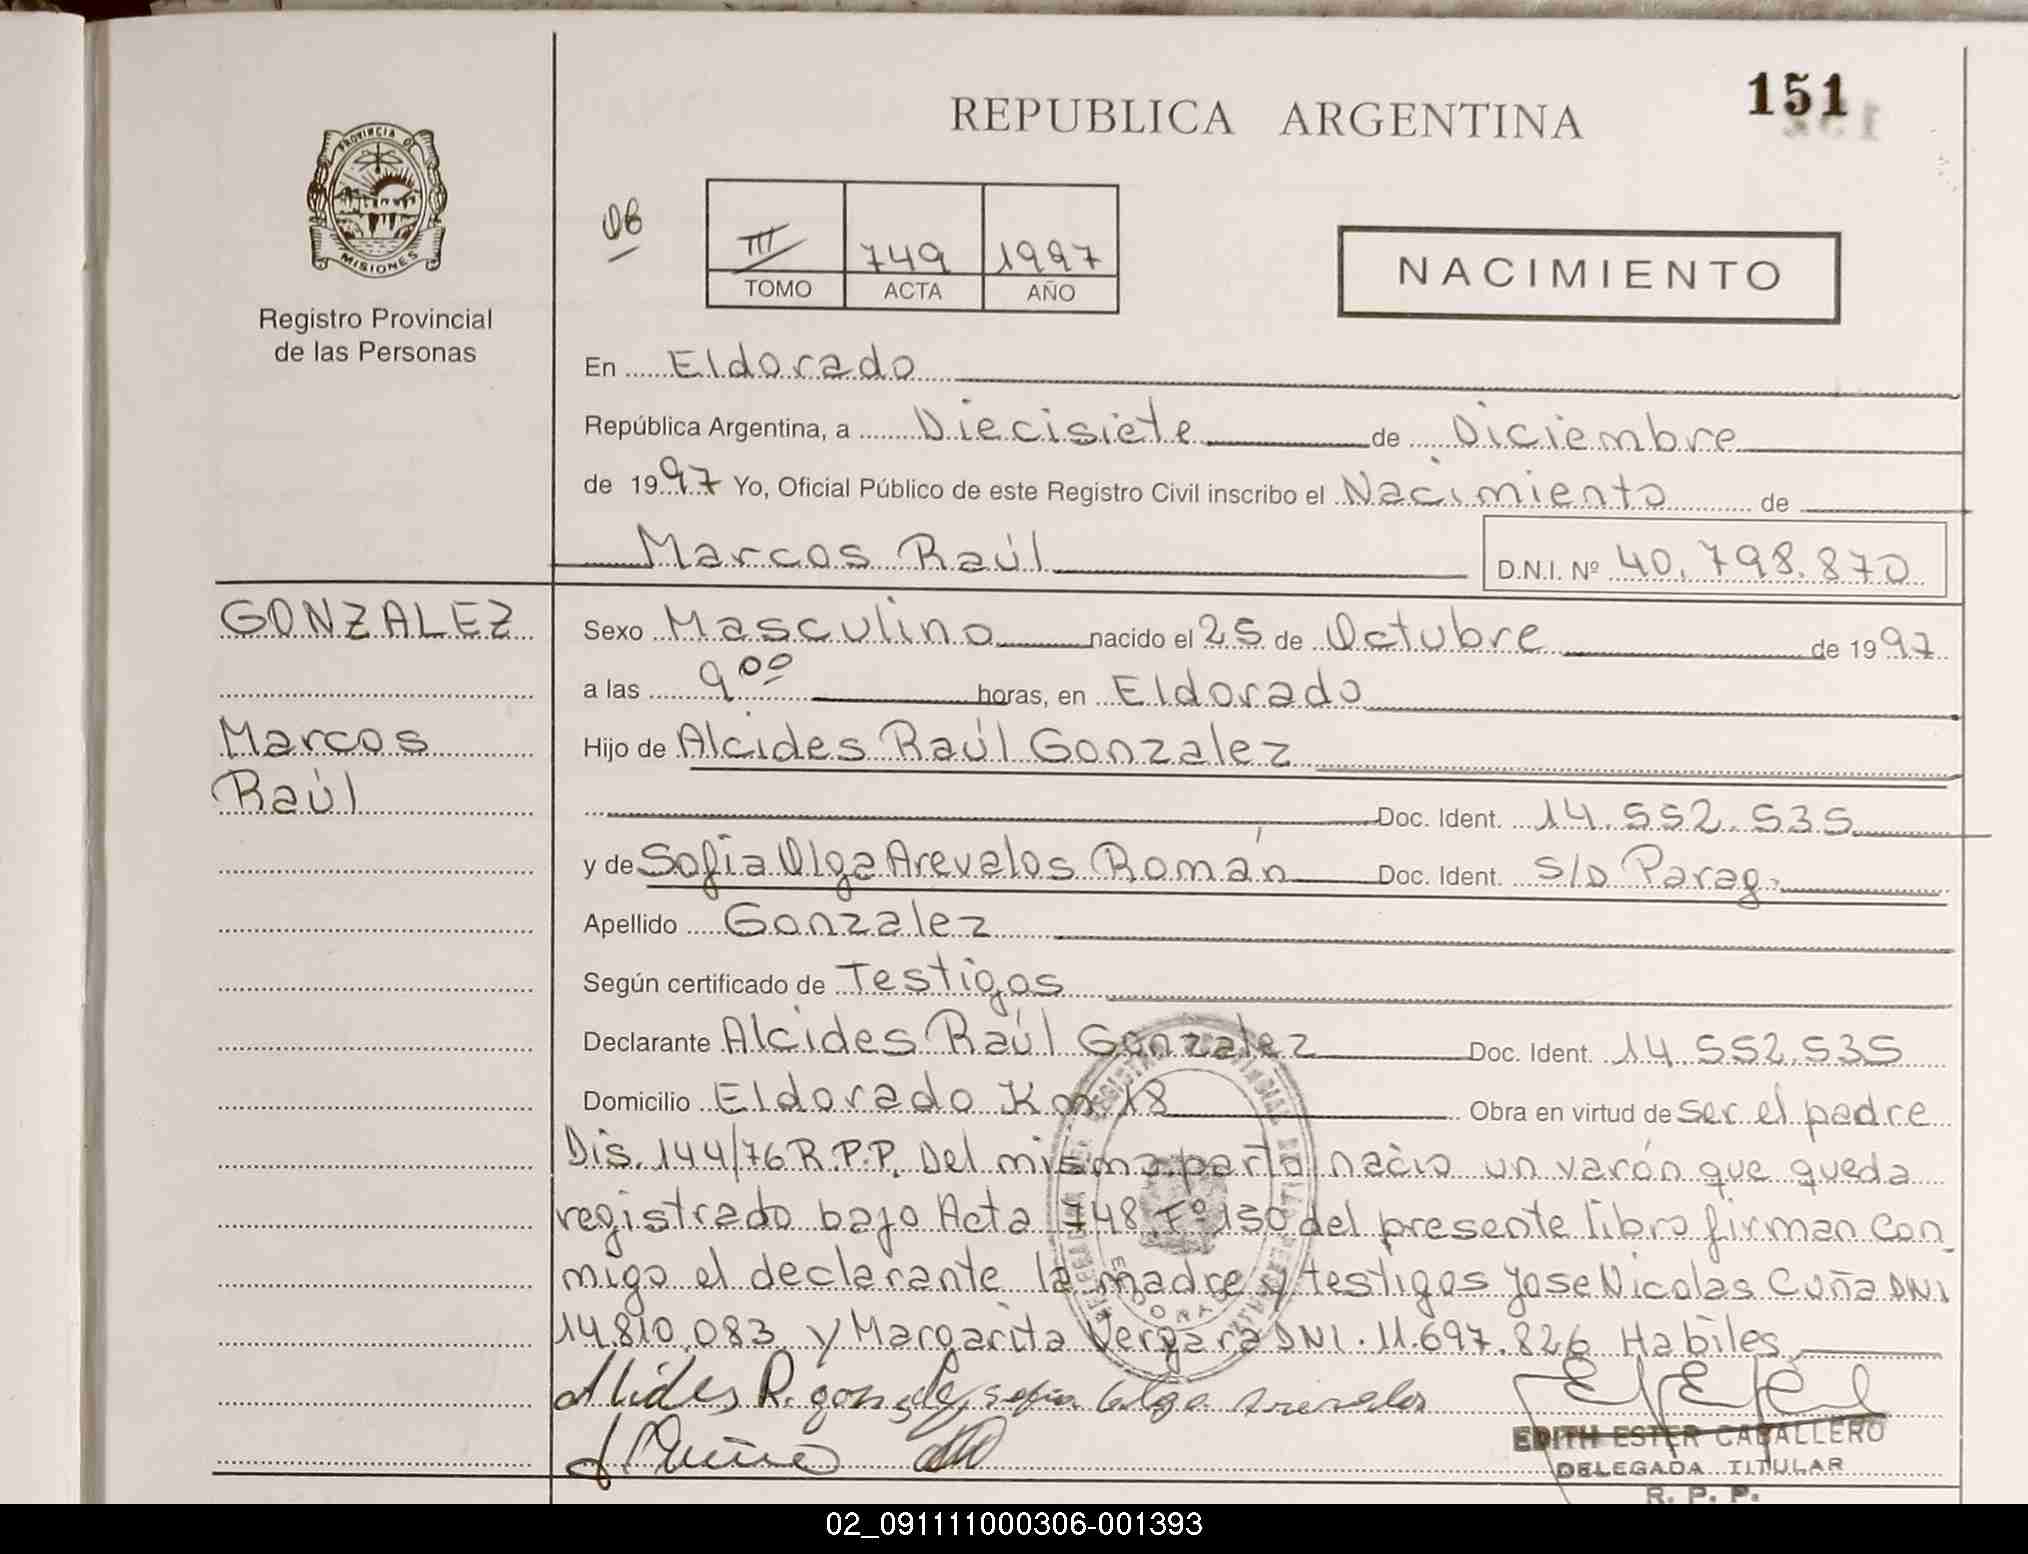 151
REPUBLICA ARGENTINA
PROVINCIA DE
MISIONES
Registro Provincial
de las Personas
III 749 1997
TOMO ACTA AÑO
NACIMIENTO
En Eldorado
República Argentina, a Diecisiete de Diciembre
de 1997 Yo, Oficial Público de este Registro Civil inscribo el Nacimiento de
Marcos Raúl D.N.I. Nº 40.798.870
GONZALEZ
Marcos
Raúl
Sexo Masculino nacido el 25 de Octubre de 1997
a las 9⁰⁰ horas, en Eldorado
Hijo de Alcides Raúl Gonzalez
Doc. Ident. 14.552.535
y de Sofia Olga Arevalos Román Doc. Ident. S/D Parag.
Apellido Gonzalez
Según certificado de Testigos
Declarante Alcides Raúl Gonzalez Doc. Ident. 14.552.535
Domicilio Eldorado Km 18 Obra en virtud de ser el padre
Dis. 144/76 R.P.P. Del mismo parto nacio un varón que queda
registrado bajo Acta 748 Fº 150 del presente libro firman con
migo el declarante la madre y testigos Jose Nicolas Cuña DNI
14.810.083 y Margarita Vergara DNI. 11.697.826 Habiles
Alcides R. gonzalez sofia Olga Arevalos
EDITH ESTER CABALLERO
DELEGADA TITULAR
R. P. P.
02_091111000306-001393